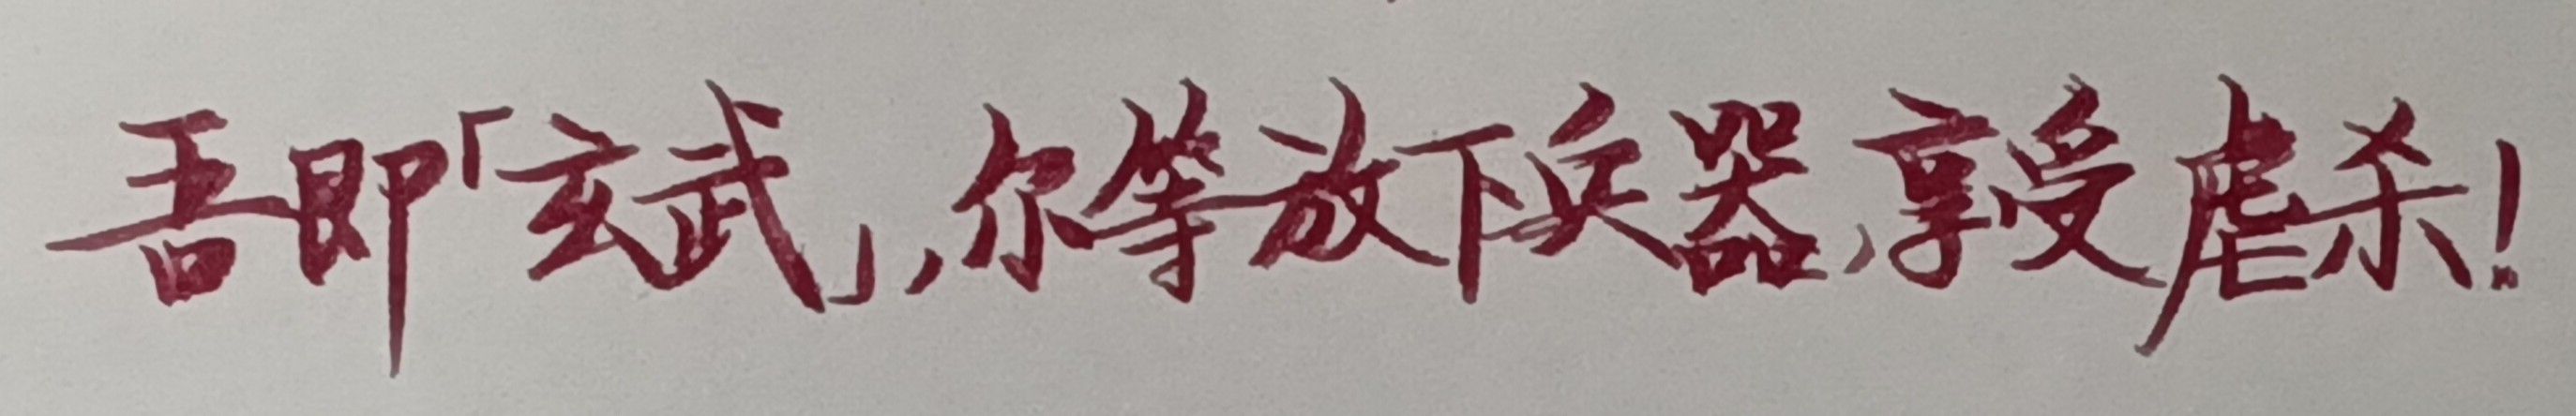 吾即「玄武」,尔等放下兵器,享受虐杀!